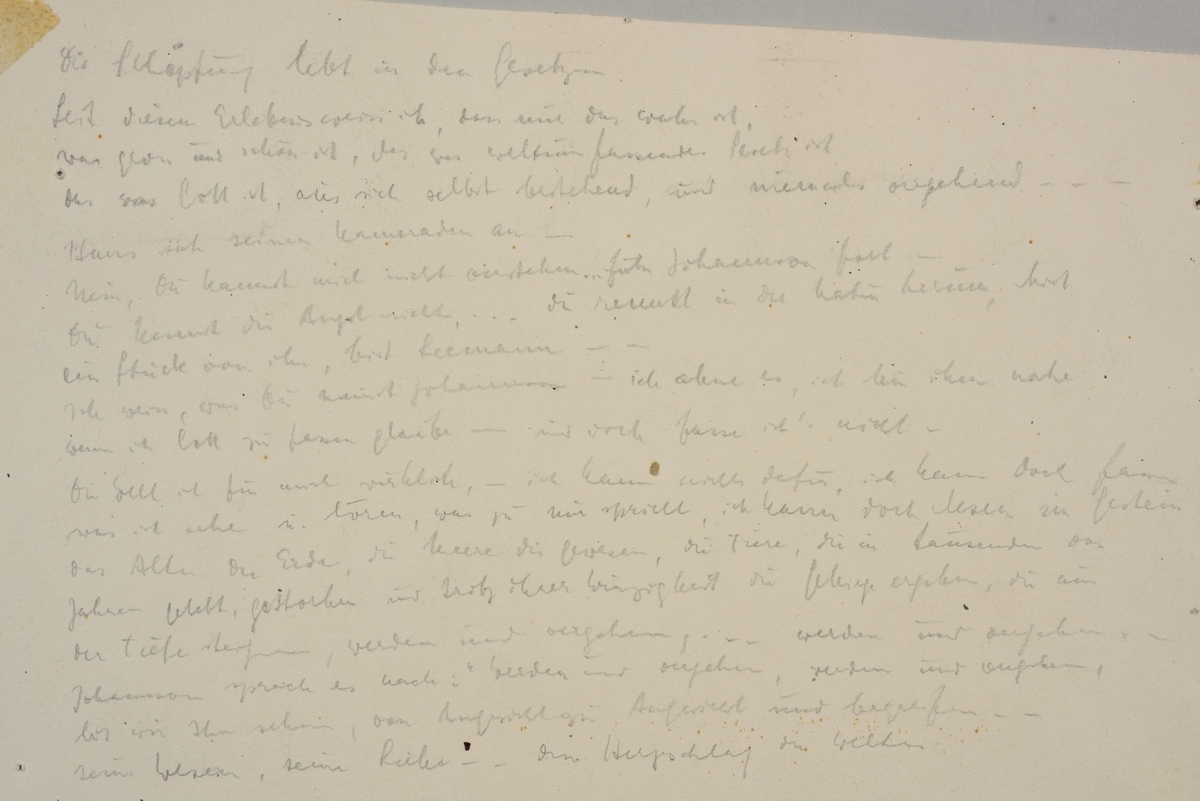 Die Schöpfung lebt in den Gesetzen.
Seit diesem Erlebnis weiss ich, dass nur das wahr ist,
was gross und schön ist, das was weltumfassendes Gesetz ist
das was Gott ist, aus sich selbst bestehend, und niemals vergehend - - -
Hans sah seinen Kameraden an. -
Nein, Du kannst mich nicht verstehen.. fuhr Johannson fort -
Du kennst die Angst nicht, ... Du in die Natur herum, bist
ein Stück von ihr, bist Seemann - -
Ich weiss, was Du meinst Johannson - ich ahne es, ich bin ihm nahe
wenn ich Gott zu fassen glaube - und doch fasse ich's nicht -
Die Welt ist für mich wirklich, - ich kann nichts dafür, ich kann doch fassen
was ich sehe u. höre, was zu mir spricht, ich kann doch lesen im Gestein
das Alter der Erde, die Meere die gewesen, die Tiere, die in Tausenden von
Jahren gelebt, gestorben und trotz ihrer Winzigkeit die Gebirge ergeben, die aus
der Tiefe steigen, werden und vergehen, ... werden und vergehen. -
Johannson sprach es nach: "Werden und vergehen, werden und vergehen,
bis wir Ihn sehen, von Angesicht zu Angesicht und begreifen - -
sein Wesen, seine Liebe - - den Herzschlag der Welten